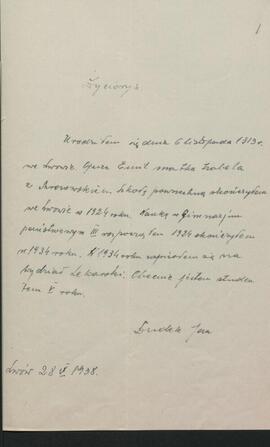 1
Życiorys
Urodziłem się dnia 6 listopada 1913 r.
we Lwowie. Ojciec Emil matka Izabela
z Jaworowskich. Szkołę powszechną skończyłem
we Lwowie w 1924 roku. Naukę w Gimnazjum
państwowym III rozpocząłem 1924 skończyłem
w 1934 roku. W 1934 roku zapisałem się na
wydział Lekarski. Obecnie jestem studen
tem V roku.
Dudek Jan
Lwów 28 V 1938.